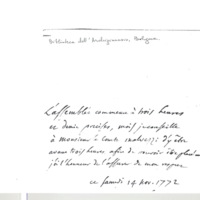 Biblioteca dell'Archiginnasio, Bologna
L'assemblée commence à trois heures
et demie precises, mais je conseille
à monsieur le comte d'y être
avant trois heures afin de pouvoir être placé
j'ai l'honneur de l'assurer de mon respect
ce samedi 14 nov. 1772